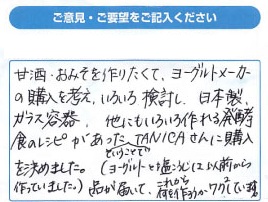 ご意見・ご要望をご記入ください
甘酒・おみそを作りたくて、ヨーグルトメーカー
の購入を考え、いろいろ検討し、日本製、
ガラス容器、他にもいろいろ作れる発酵
食のレシピがあったTANICAさんに購入
ということで
を決めました。(ヨーグルトと塩こうじは以前から
作っていました。)品が届いて、これから
何を作ろうかワクワクしています